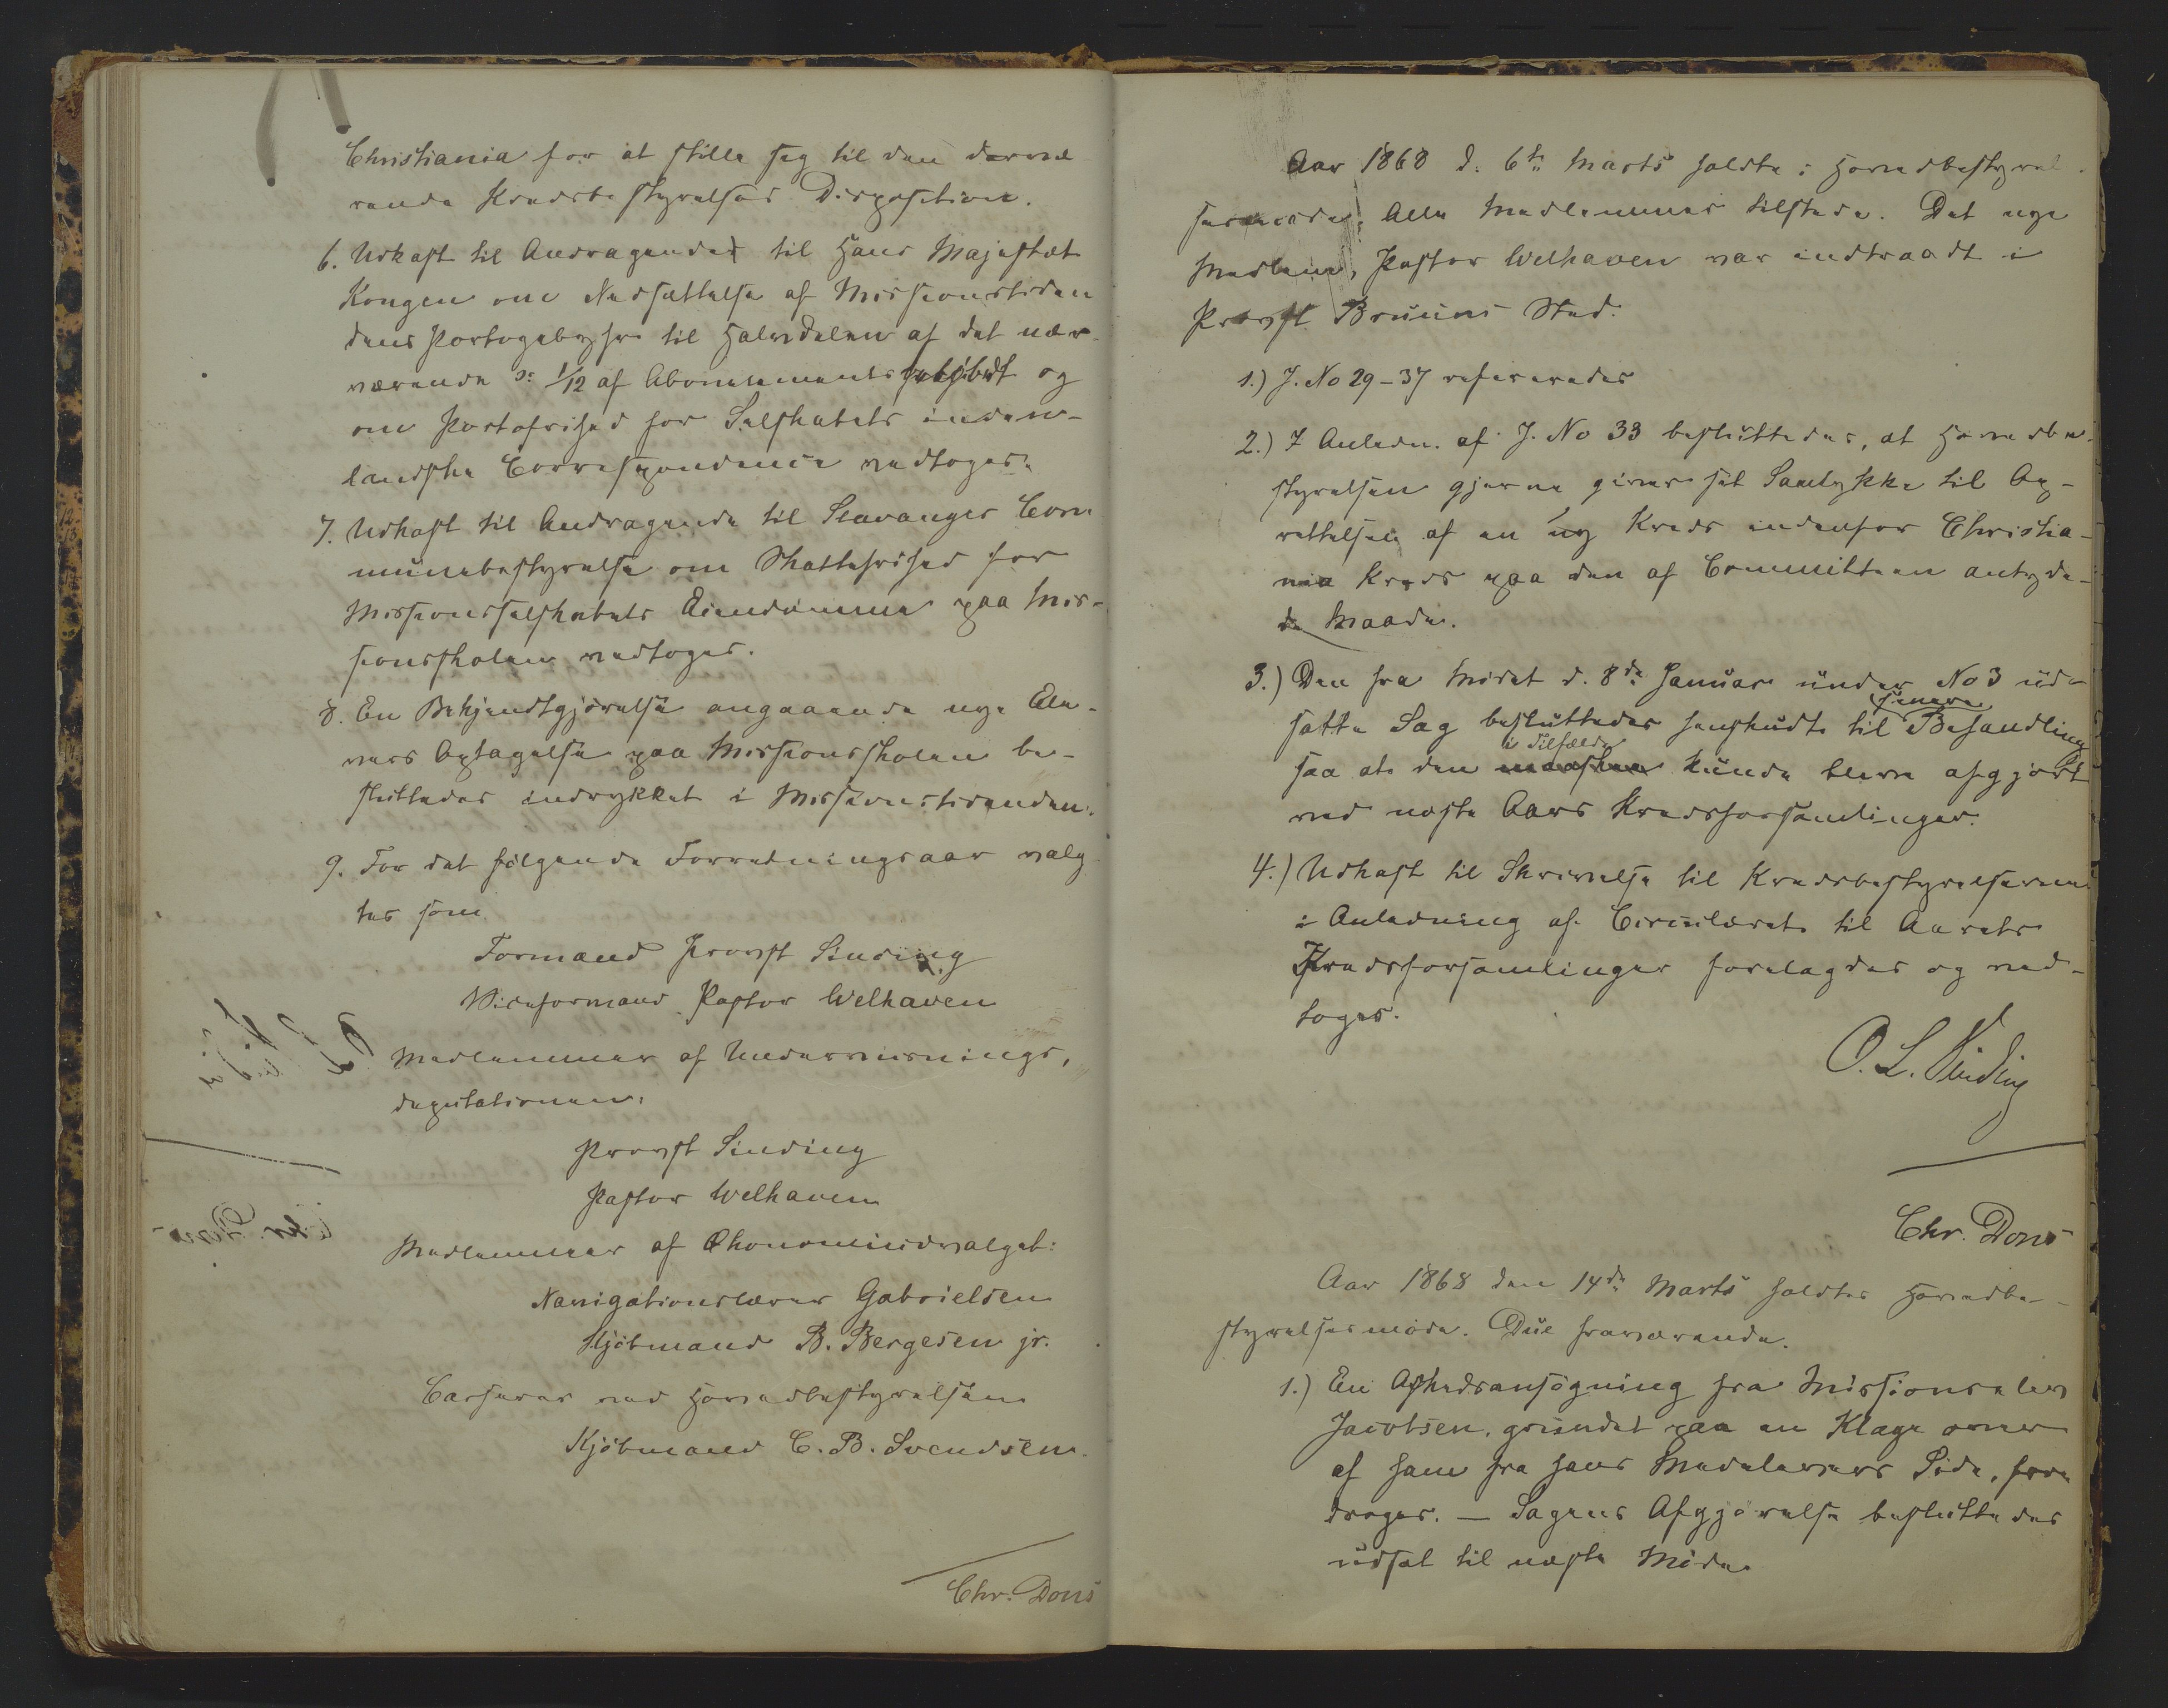 Christiania for at stille sig til den dervæ
rende Kredsbestyrelses Disposition.
6. Udkast til Andragender til Hans Majestæt
Kongen om Nedsættelse af Missionstiden
dens Portogebyhr til Halvdelen af det nær-
værende ɔ: 1/12 af Abonnements og
om Portofrihed for Selskabets inden-
landske Correspondence vedtoges.
7. Udkast til Andragende til Stavanger Com
munebestyrelse om Skattefrihed for
Missionsselskabets Eiendomme paa Mis-
sionsskolen vedtoges.
8. En Bekjendtgjörelse angaaende nye Ele-
vers Optagelse paa Missionsskolen be-
sluttedes indrykket i Missionstidenden.
9. For det fölgende Forretningsaar valg-
tes som
Formand Provst Sinding
Viceformand Pastor Welhaven
Medlemmer af Underviisnings,
deputationen:
Provst Sinding
Pastor Welhaven
Medlemmer af Økonomiudvalget:
Navigationslærer Gabrielsen
Kjöbmand B. Bergesen jr.
Casserer ved Hovedbestyrelsen
Kjöbmand C. B. Svendsen.
Chr. Dons
Aar 1868 d. 6te Marts holdtes Hovedbestyrel-
sesmöde. Alle Medlemmer tilstede. Det nye
Medlem, Pastor Welhaven var indtraadt i
Provst Bruuns Sted.
1.) J. No 29-37 refereredes
2.) I Anledn. af J. No 33 besluttedes, at Hovedbe-
styrelsen gjerne giver sit Samtykke til Op-
rettelsen af en ny Kreds indenfor Christia-
nia Kreds paa den af Committeen antyde-
de Maade.
3.) Den fra Mödet d. 8de Januar under No 3 ud-
satte Sag besluttedes henskudt til senere Behandling
saa at den i Tilfælde kunde blive afgjort
ved næste Aars Kredsforsamlinger.
4.) Udkast til Skrivelse til Kredsbestyrelserne
i Anledning af Circulæret til Aarets
Kredsforsamlinger forelagdes og ved-
toges.
O. L. Sinding
Chr. Dons
Aar 1868 den 14de Marts holdtes Hovedbe-
styrelsesmöde. Due fraværende.
1.) En Afskedsansögning fra Missionselev
Jacobsen, grundet paa en Klage over
af ham fra hans Medelevers Side, fore
droges. — Sagens Afgjörelse besluttedes
udsat til næste Möde.